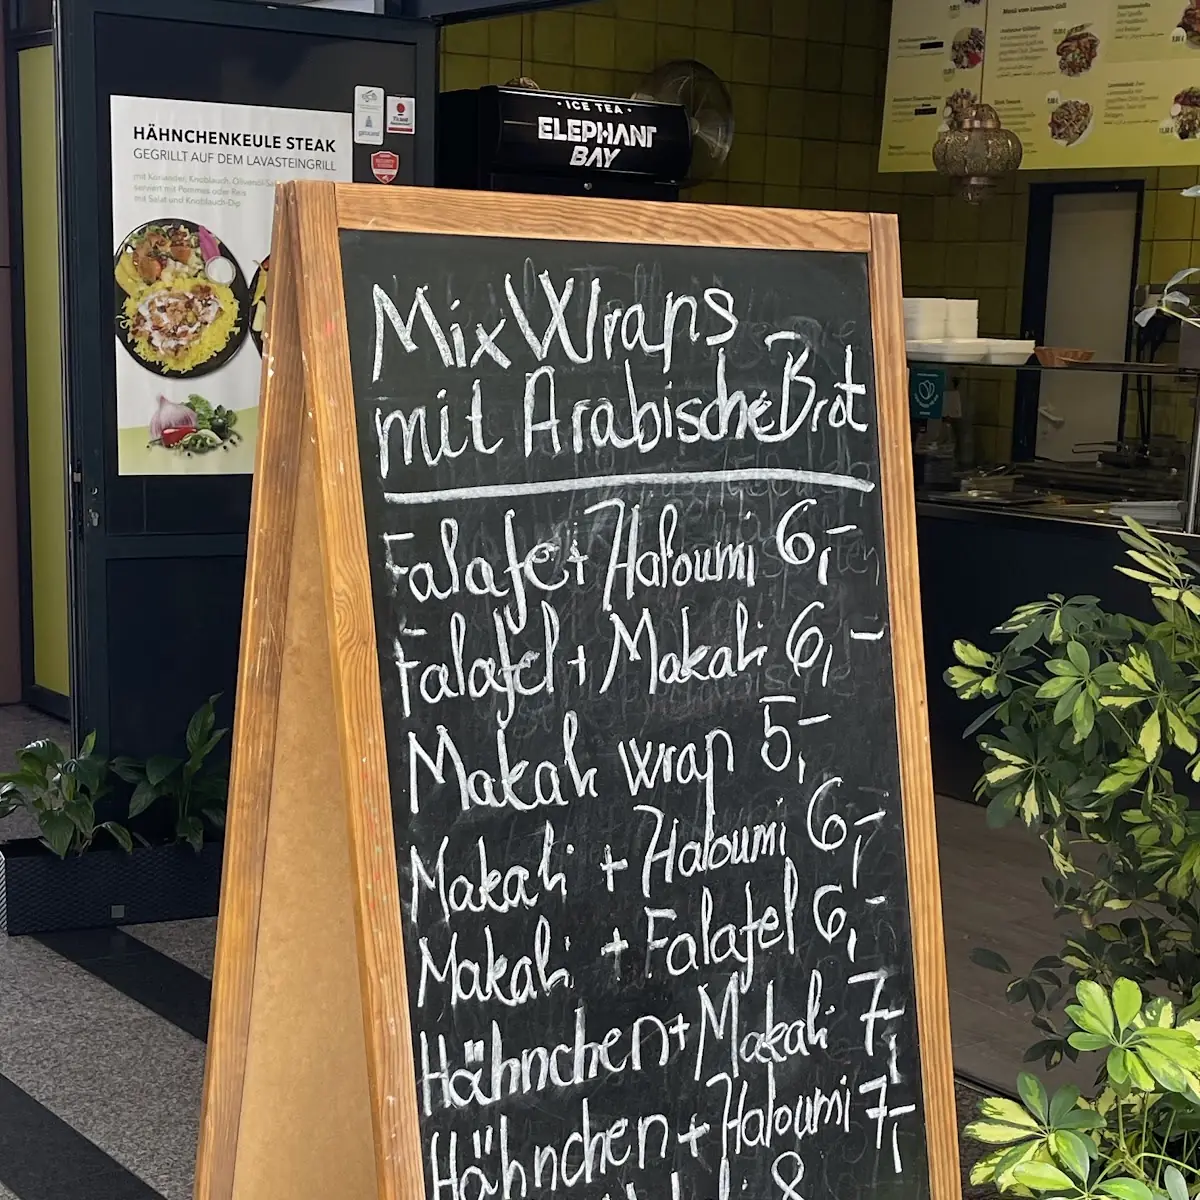 HÄHNCHENKEULE STEAK
GEGRILLT AUF DEM LAVASTEINGRILL
mit Koriander, Knoblauch, Olivenöl
serviert mit Pommes oder Reis
mit Salat und Knoblauch-Dip
• ICE TEA •
ELEPHANT
BAY
Menü vom Lavastein-Grill
Mix Wraps
mit Arabische Brot
Falafe + Haloumi 6,-
Falafel + Makali 6,-
Makali wrap 5,-
Makali + Haloumi 6,-
Makali + Falafel 6,-
Hähnchen + Makali 7,-
Hähnchen + Haloumi 7,-
8